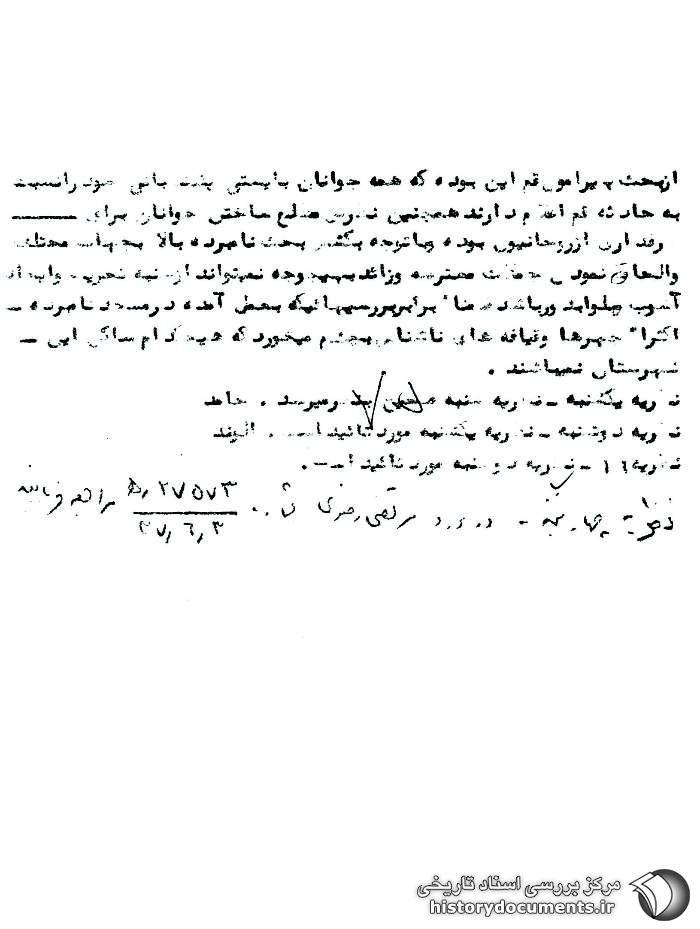 ازبحث پیرامون قم این بوده که همه جوانان بایستی پشتیبانی خود رانسبت
به حادثه قم اعلام دارند همچنین نامبرده ساختن جوانان برای
طرفداری ازروحانیون بوده وباتوجه بکشش بحث نامبرده بالا بجهات مختلف
والحاق نمودن جملات معترضه وزائد بهیچوجه نمیتواند از جنبه تحریک وایجاد
آشوب جلوگیری باشد ضمنا" برابربررسیهائیکه بعمل آمده درمسجد نامبرده
اکثرا" چهره‌ها وقیافه های ناشناس بچشم میخورد که هیچکدام ساکن این
شهرستان نمیباشند .
نظریه یکشنبه - نظریه شنبه صحیح بنظرمیرسد . حامد
نظریه دوشنبه - نظریه یکشنبه مورد تائید است . الوند
نظریه ۱۱ - نظریه دوشنبه مورد تائید است .
نظریه چهارشنبه - در مورد مرتضی رضوی ۲۷۵۷۳ مراجعه فرمایید
۳۷٫۶٫۳
مرکز بررسی اسناد تاریخی
historydocuments.ir